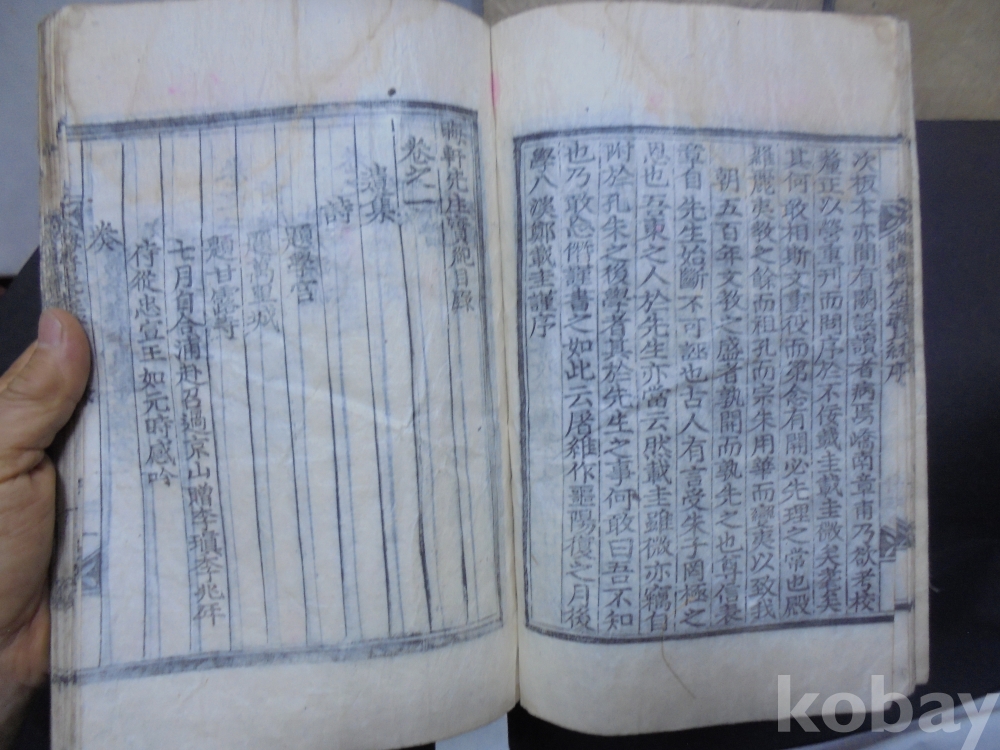 次板本亦間有闕誤讀者病焉嶠南章甫乃欲考校
釐正以營重刊而問序於不佞載圭載圭微矣耄矣
其何敢相斯文重役而第念有開必先理之常也殿
羅麗夷教之餘而祖孔而宗朱用華而變夷以致我
朝五百年文教之盛者孰開而孰先之也尊信表
章自先生始斷不可誣也古人有言受朱子罔極之
恩也吾東之人於先生亦當云然載圭雖微亦竊自
附於孔朱之後學者其於先生之事何敢曰吾不知
也乃敢忘僭謹書之如此云屠維作噩陽復之月後
學八溪鄭載圭謹序
晦軒先生實紀目錄
卷之一
遺集
詩
題學宮
題高里城
題甘露寺
七月自合浦赴召過京山贈李瑱李兆年
侍從忠宣王如元時感吟
kobay